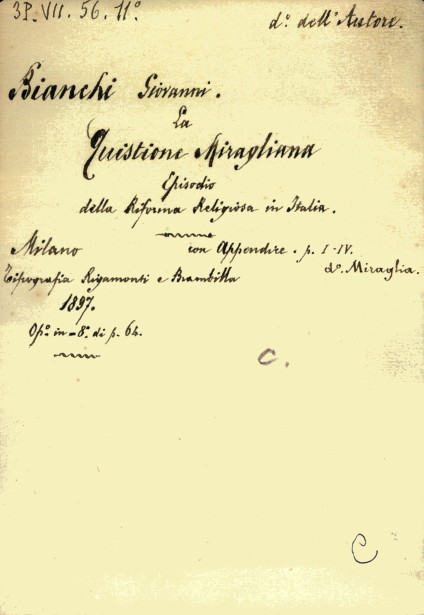 3P. VII. 56. 11º
dº. dell' Autore.
Bianchi Giovanni.
La
Quistione Miragliana
Episodio
della Riforma Religiosa in Italia.
con Appendice. p. I-IV.
dº. Miraglia.
Milano
Tipografia Rigamonti e Brambilla
1897.
Opº. in-8º. di p. 64.
C.
C